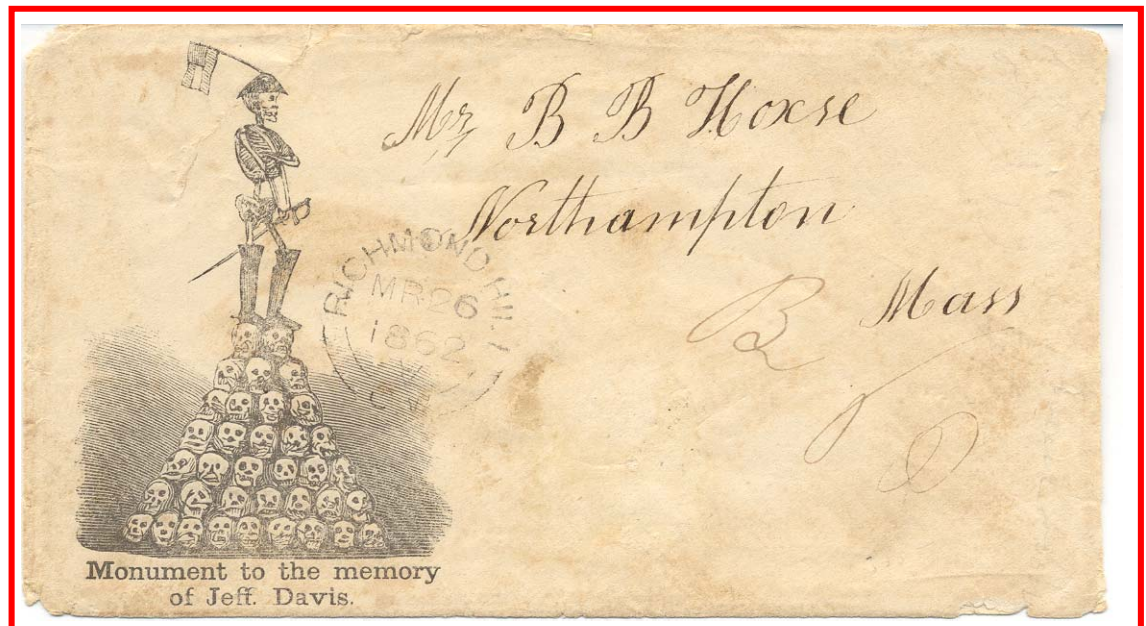 Mr B B Hoxse
Northampton
Mass
RICHMOND HILL
MR 26
1862
C.W
Monument to the memory
of Jeff. Davis.